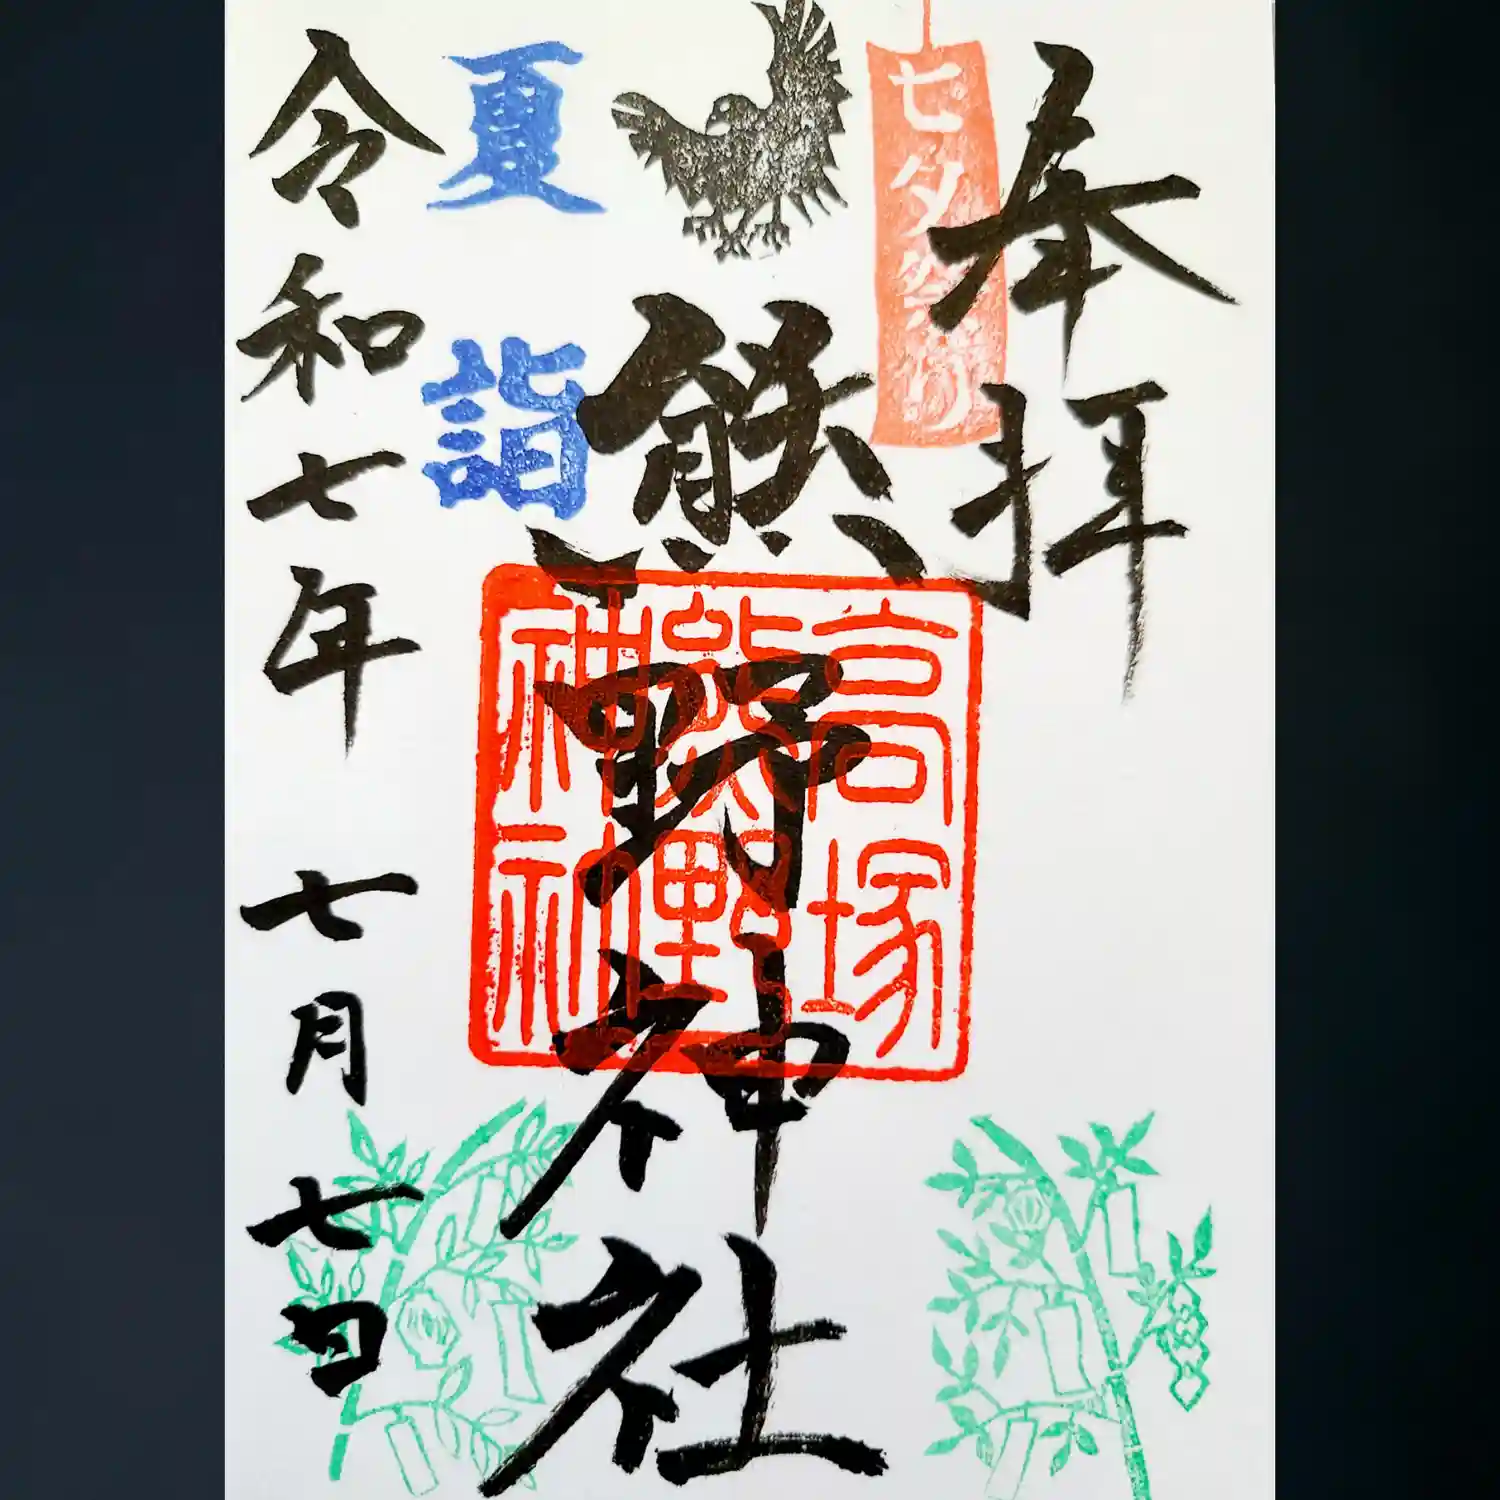 奉拝
七夕祭り
熊野神社
高塚
熊野
神社
夏詣
令和七年 七月七日